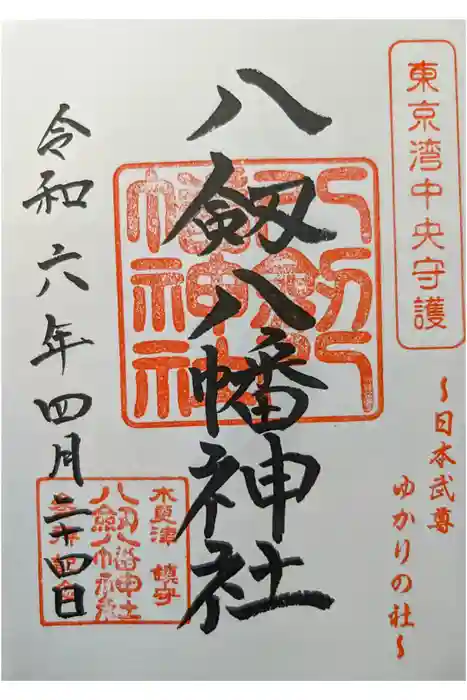 東京湾中央守護
〜日本武尊
ゆかりの社〜
八剱八幡神社
八剱八幡神社
木更津 鎮守
八剱八幡神社
令和六年四月二十四日